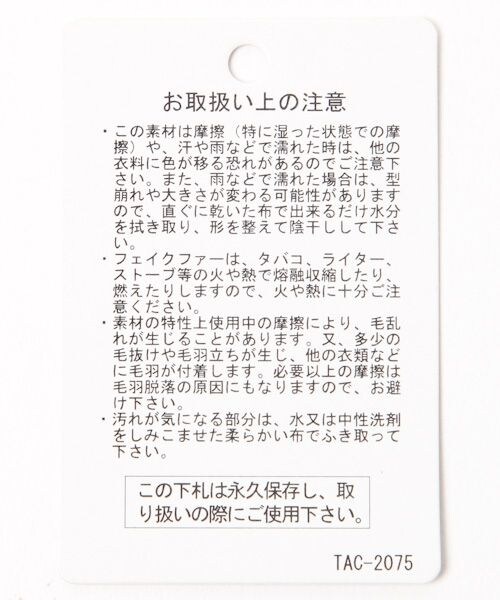 お取扱い上の注意
・この素材は摩擦（特に湿った状態での摩
擦）や、汗や雨などで濡れた時は、他の
衣料に色が移る恐れがあるのでご注意下
さい。また、雨などで濡れた場合は、型
崩れや大きさが変わる可能性があります
ので、直ぐに乾いた布で出来るだけ水分
を拭き取り、形を整えて陰干しして下さ
い。
・フェイクファーは、タバコ、ライター、
ストーブ等の火や熱で熔融収縮したり、
燃えたりしますので、火や熱に十分ご注
意ください。
・素材の特性上使用中の摩擦により、毛乱
れが生じることがあります。又、多少の
毛抜けや毛羽立ちが生じ、他の衣類など
に毛羽が付着します。必要以上の摩擦は
毛羽脱落の原因にもなりますので、お避
け下さい。
・汚れが気になる部分は、水又は中性洗剤
をしみこませた柔らかい布でふき取って
下さい。
この下札は永久保存し、取
り扱いの際にご使用下さい。
TAC-2075